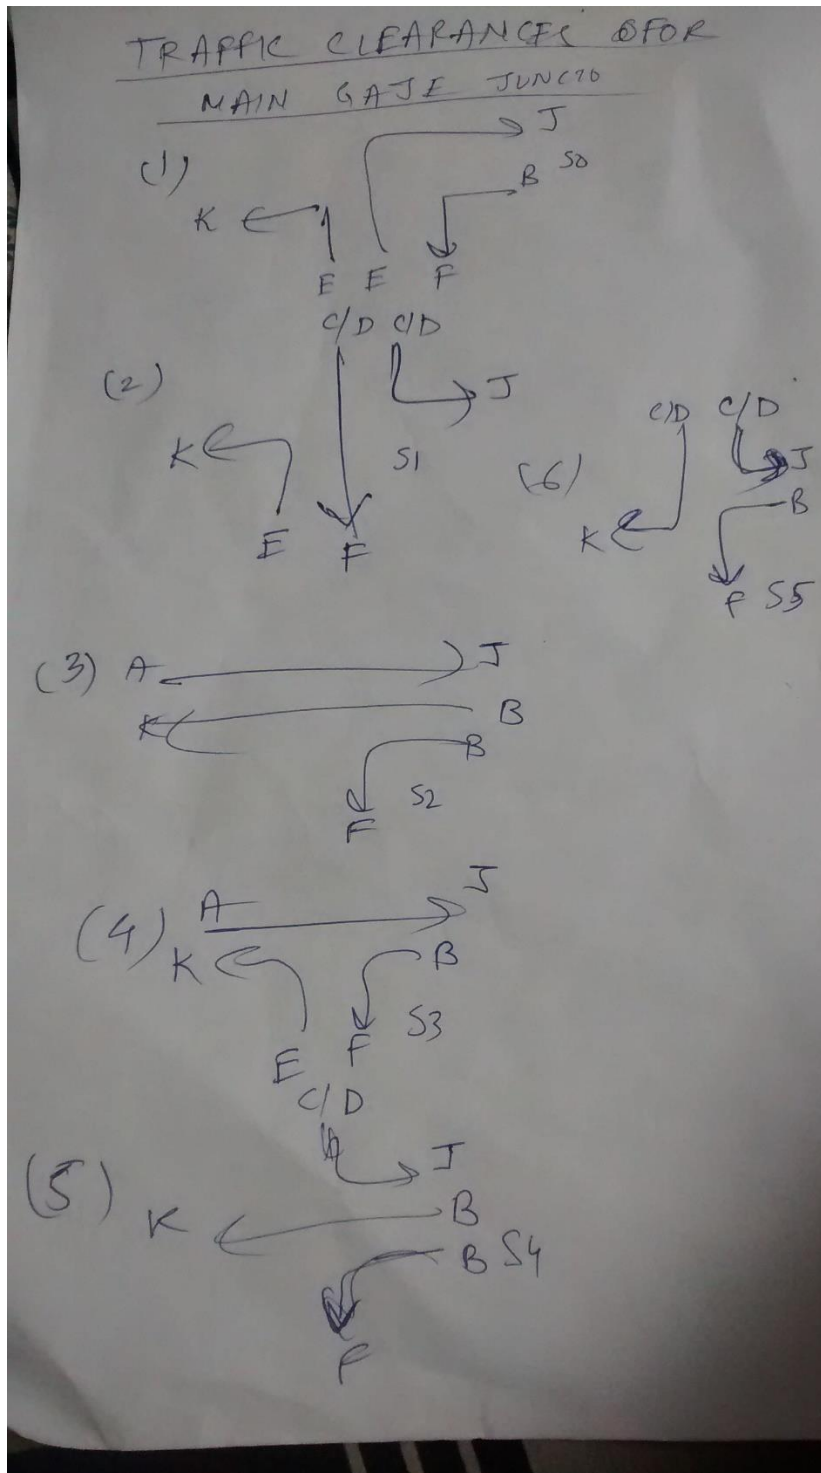 TRAFFIC CLEARANCES FOR
MAIN GATE JUNCTO
(1)
J
B S0
K
E E F
C/D C/D
(2)
J
K
S1
E F
(6)
C/D C/D
J
B
K
F S5
(3) A J
K B
B
S2
F
(4) A J
K B
S3
E F
C/D
(5)
J
K B
B S4
F